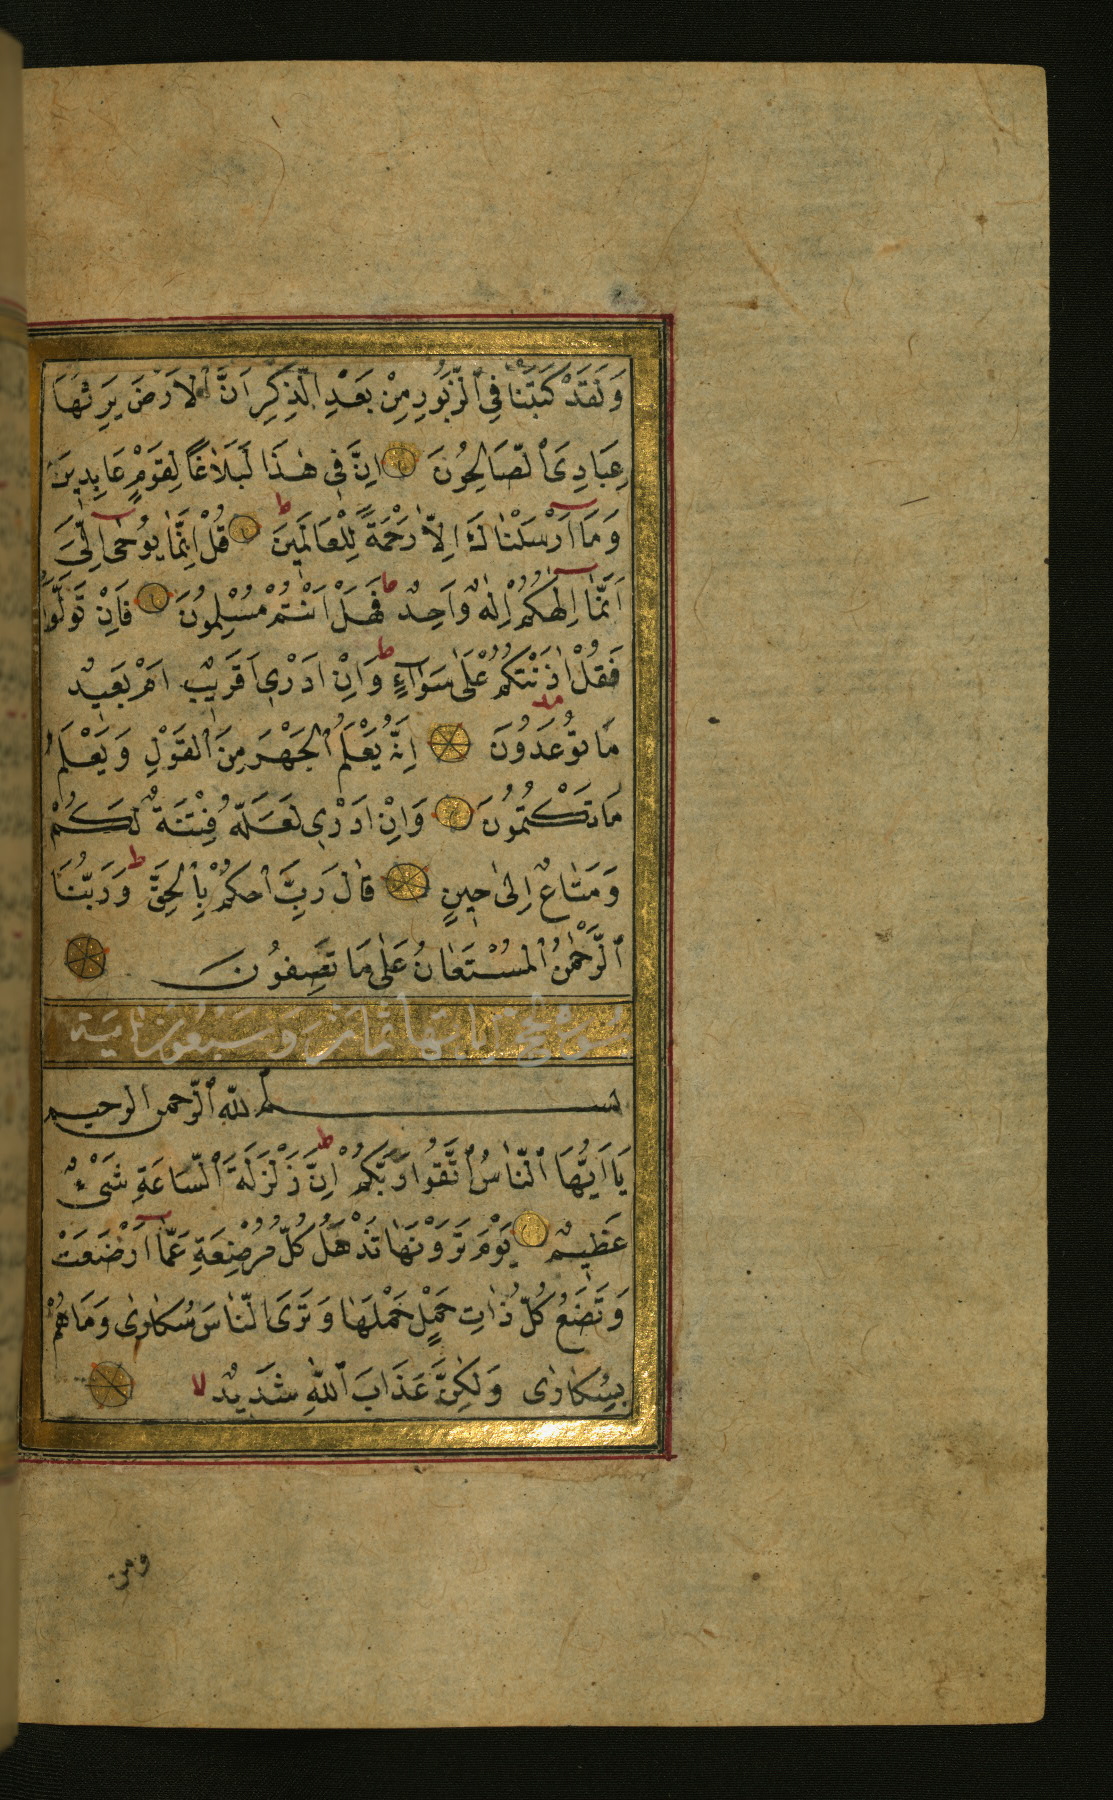 وَلَقَدْ كَتَبْنَا فِى ٱلزَّبُورِ مِنْ بَعْدِ الذِّكْرِ اَنَّ ٱلْاَرْضَ يَرِثُهَا
عِبَادِىَ ٱلصَّالِحُونَ اِنَّ فِى هٰذَا لَبَلَاغًا لِقَوْمٍ عَابِدِينَ
وَمَا اَرْسَلْنَاكَ اِلَّا رَحْمَةً لِلْعَالَمِينَ ط قُلْ اِنَّمَا يُوحٰى اِلَىَّ
اَنَّمَا اِلٰهُكُمْ اِلٰهٌ وَاحِدٌ فَهَلْ اَنْتُمْ مُسْلِمُونَ فَاِنْ تَوَلَّوْا
فَقُلْ اٰذَنْتُكُمْ عَلٰى سَوَآءٍ ط وَاِنْ اَدْرِى اَقَرِيبٌ اَمْ بَعِيدٌ
مَا تُوعَدُونَ اِنَّهُ يَعْلَمُ ٱلْجَهْرَ مِنَ ٱلْقَوْلِ وَيَعْلَمُ
مَا تَكْتُمُونَ وَاِنْ اَدْرِى لَعَلَّهُ فِتْنَةٌ لَكُمْ
وَمَتَاعٌ اِلٰى حِينٍ قَالَ رَبِّ ٱحْكُمْ بِٱلْحَقِّ ط وَرَبُّنَا
ٱلرَّحْمٰنُ ٱلْمُسْتَعَانُ عَلٰى مَا تَصِفُونَ
سُورَةُ ثمان وَسَبْعُونَ اٰيَة
بسم الله ٱلرّحمن الرحيم
يَا اَيُّهَا ٱلنَّاسُ ٱتَّقُوا رَبَّكُمْ ط اِنَّ زَلْزَلَةَ ٱلسَّاعَةِ شَىْءٌ
عَظِيمٌ يَوْمَ تَرَوْنَهَا تَذْهَلُ كُلُّ مُرْضِعَةٍ عَمَّا اَرْضَعَتْ
وَتَضَعُ كُلُّ ذَاتِ حَمْلٍ حَمْلَهَا وَتَرَى النَّاسَ سُكَارٰى وَمَا هُمْ
بِسُكَارٰى وَلٰكِنَّ عَذَابَ ٱللّٰهِ شَدِيدٌ لا
ومن